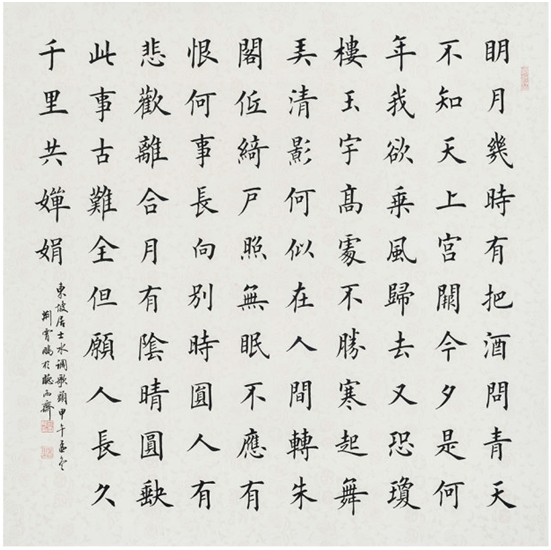 明月幾時有把酒問青天
不知天上宮闕今夕是何
年我欲乘風歸去又恐瓊
樓玉宇高處不勝寒起舞
弄清影何似在人間轉朱
閣低綺戶照無眠不應有
恨何事長向別時圓人有
悲歡離合月有陰晴圓缺
此事古難全但願人長久
千里共嬋娟
東坡居士水調歌頭甲午孟冬
荆霄鵬於聽雨齋